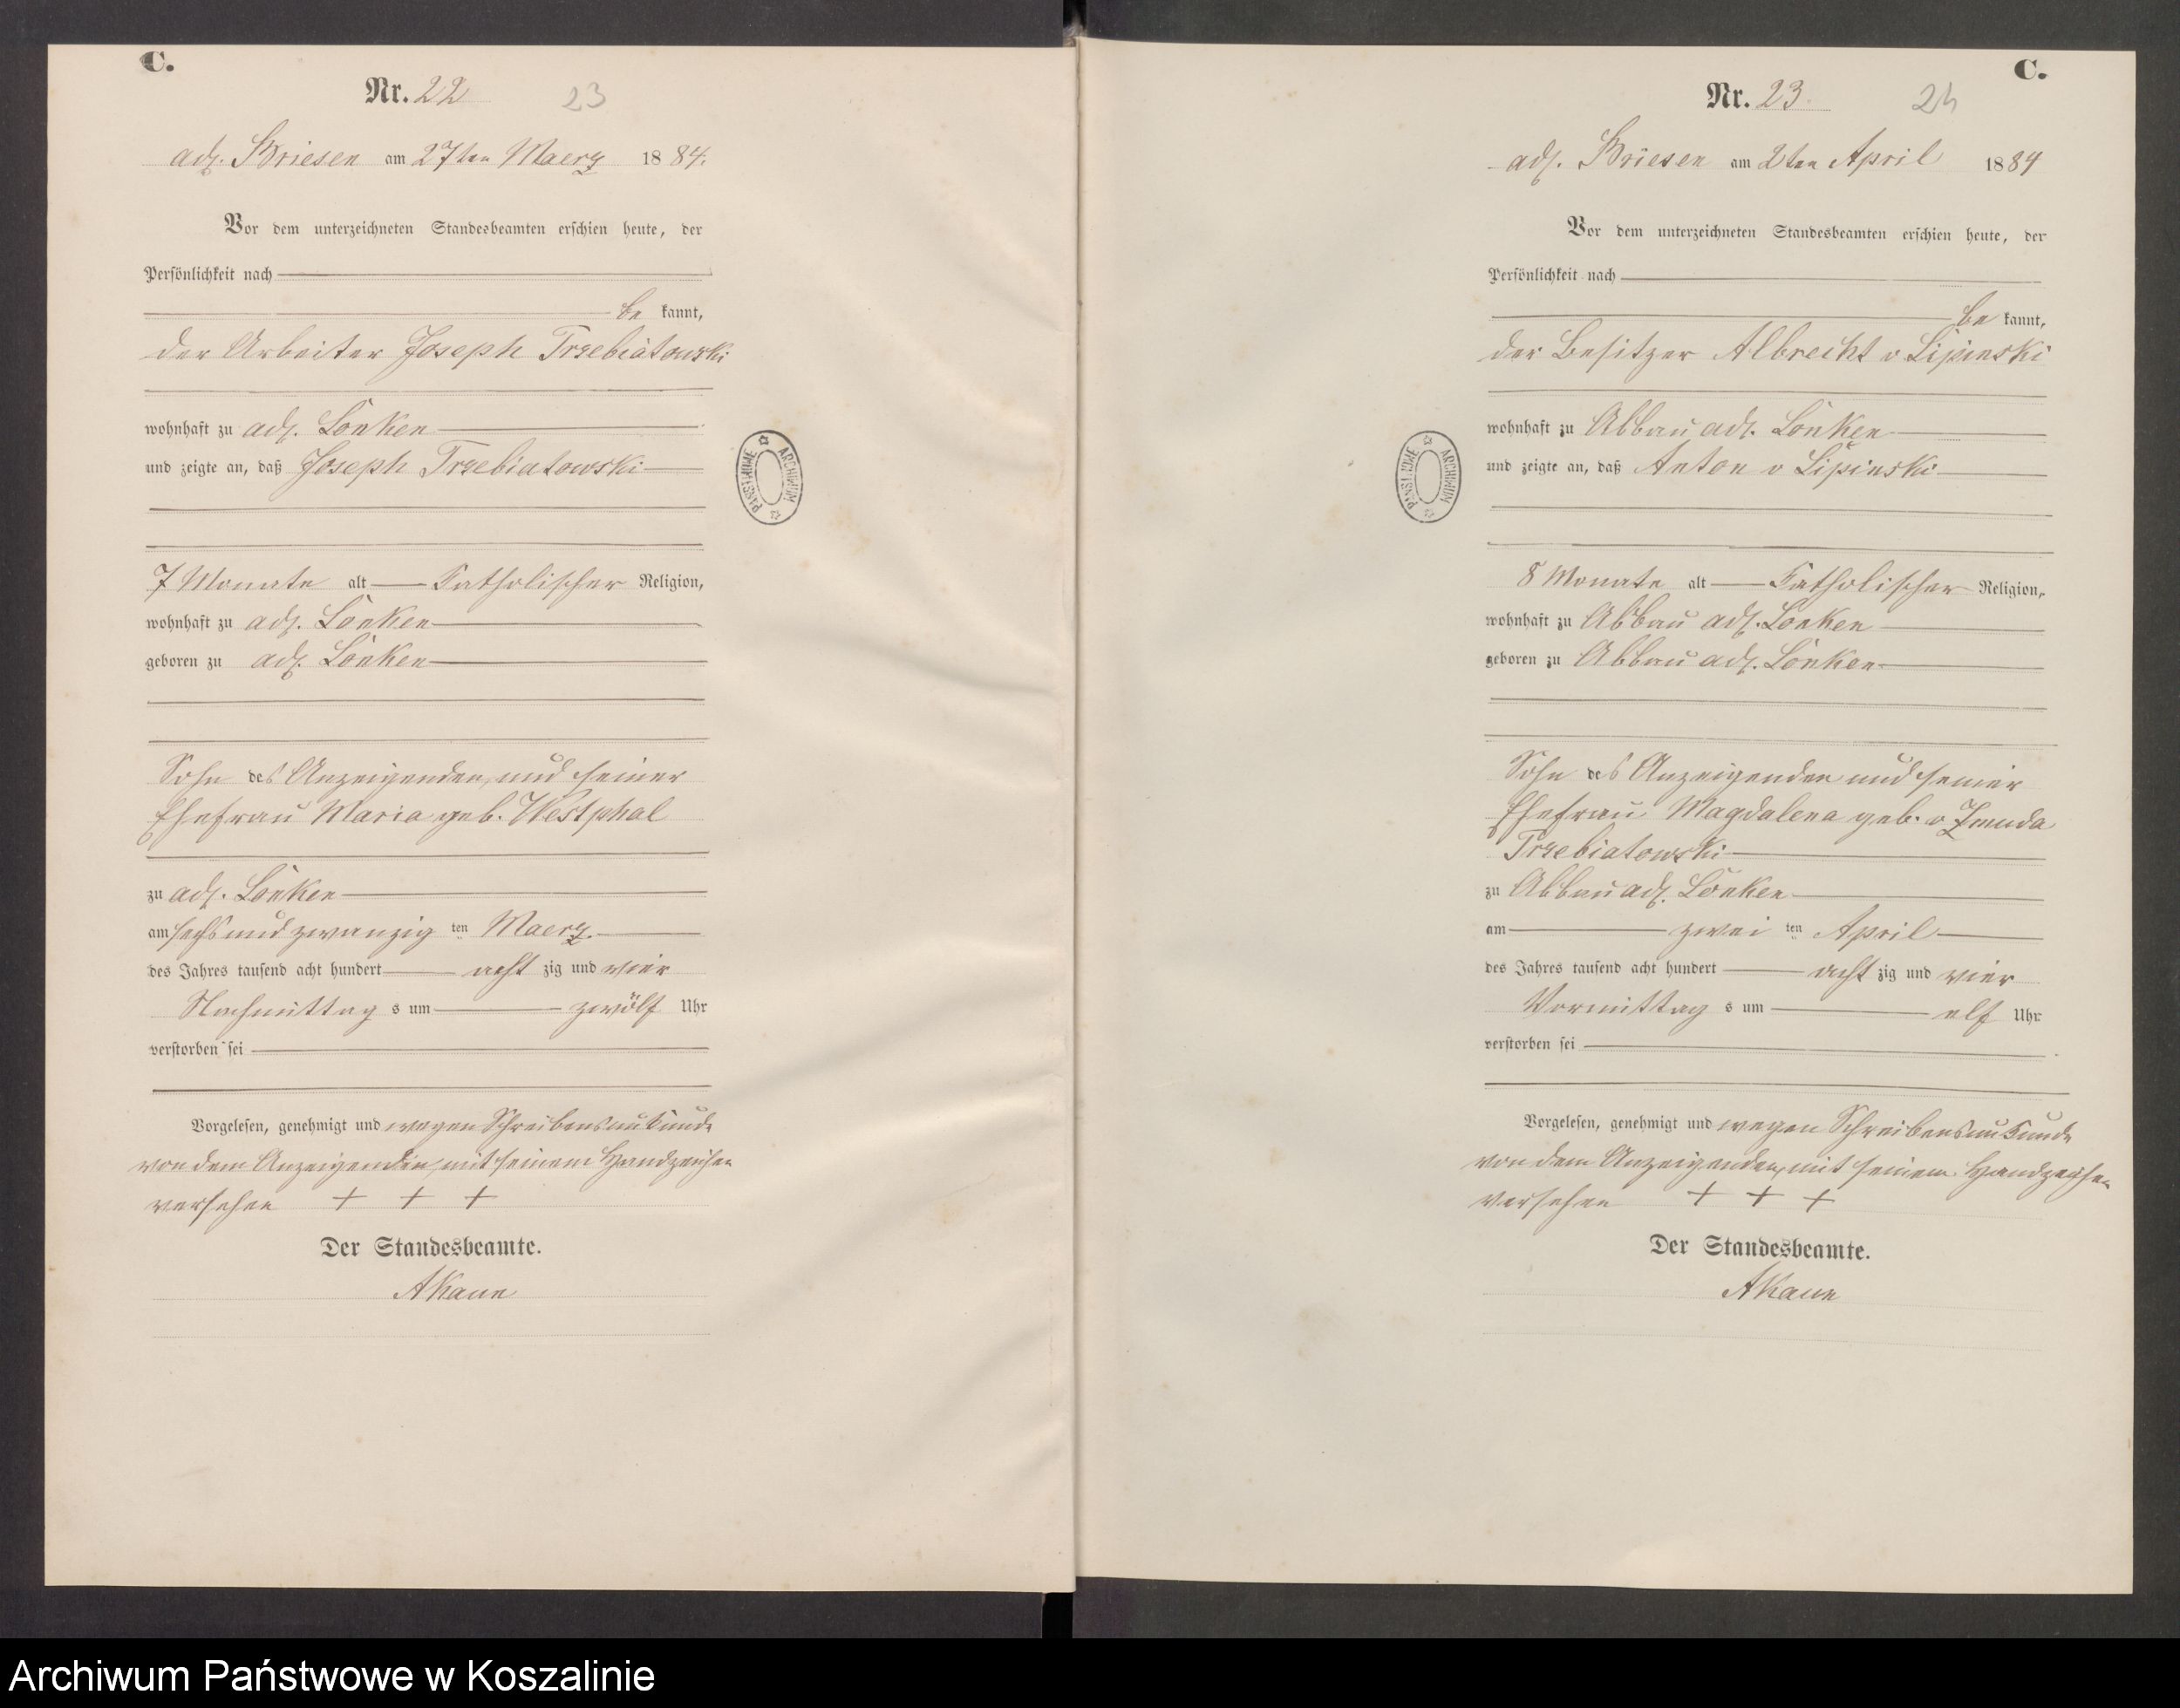 C.
Nr. 22 23
adl. Briesen am 27ten Maerz 1884.
Vor dem unterzeichneten Standesbeamten erschien heute, der
Persönlichkeit nach
be kannt,
der Arbeiter Joseph Trzebiatowski
wohnhaft zu adl. Lonken
und zeigte an, daß Joseph Trzebiatowski
7 Monate alt katholischer Religion,
wohnhaft zu adl. Lonken
geboren zu adl. Lonken
Sohn des Anzeigenden, und seiner
Ehefrau Maria geb. Westphal
zu adl. Lonken
am sechs und zwanzig ten Maerz
des Jahres tausend acht hundert acht zig und vier
Nachmittag s um zwölf Uhr
verstorben sei
Vorgelesen, genehmigt und wegen Schreibensunkunde
von dem Anzeigenden mit seinem Handzeichen
versehen + + +
Der Standesbeamte.
ARCHIWUM PAŃSTWOWE
C.
Nr. 23. 24
adl. Briesen am 2ten April 1884
Vor dem unterzeichneten Standesbeamten erschien heute, der
Persönlichkeit nach
be kannt,
der Besitzer Albrecht v Lipinski
wohnhaft zu Abbau adl. Lonken
und zeigte an, daß Anton v Lipinski
8 Monate alt katholischer Religion,
wohnhaft zu Abbau adl. Lonken
geboren zu Abbau adl. Lonken
Sohn des Anzeigenden und seiner
Ehefrau Magdalena geb. v Zmuda
Trzebiatowski
zu Abbau adl. Lonken
am zwei ten April
des Jahres tausend acht hundert acht zig und vier
Vormittag s um elf Uhr
verstorben sei
Vorgelesen, genehmigt und wegen Schreibensunkunde
von dem Anzeigenden, mit seinem Handzeichen
versehen + + +
Der Standesbeamte.
ARCHIWUM PAŃSTWOWE
Archiwum Państwowe w Koszalinie